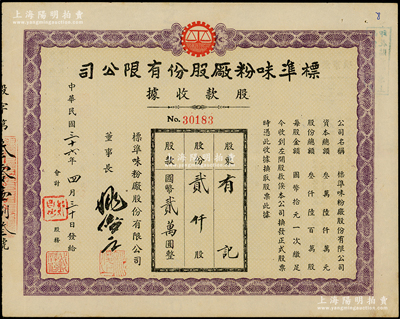 上海陽明拍賣
標準味粉廠股份有限公司
股款收據
No. 30183
公司名稱 標準味粉廠股份有限公司
資本總額 叁仟陸佰萬元
股份總額 叁佰陸拾萬股
每股金額 國幣拾元一次繳足
今收到左開股款俟本公司換發正式股票
時憑此收據換取股票此據
股東 有記
股份 貳仟股
股款國幣 貳萬圓整
標準味粉廠股份有限公司
董事長
會計 股務
中華民國三十六年四月三十日發給
股字第
號